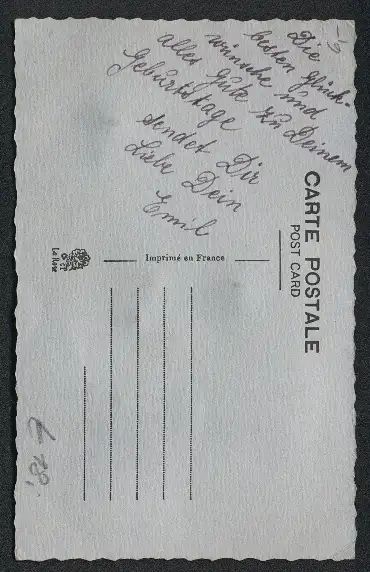 Die
besten Glück-
wünsche und
alles Gute zu Deinem
Geburtstage
sendet Dir
Liebe Dein
Emil
CARTE POSTALE
POST CARD
Imprimé en France
La Rose